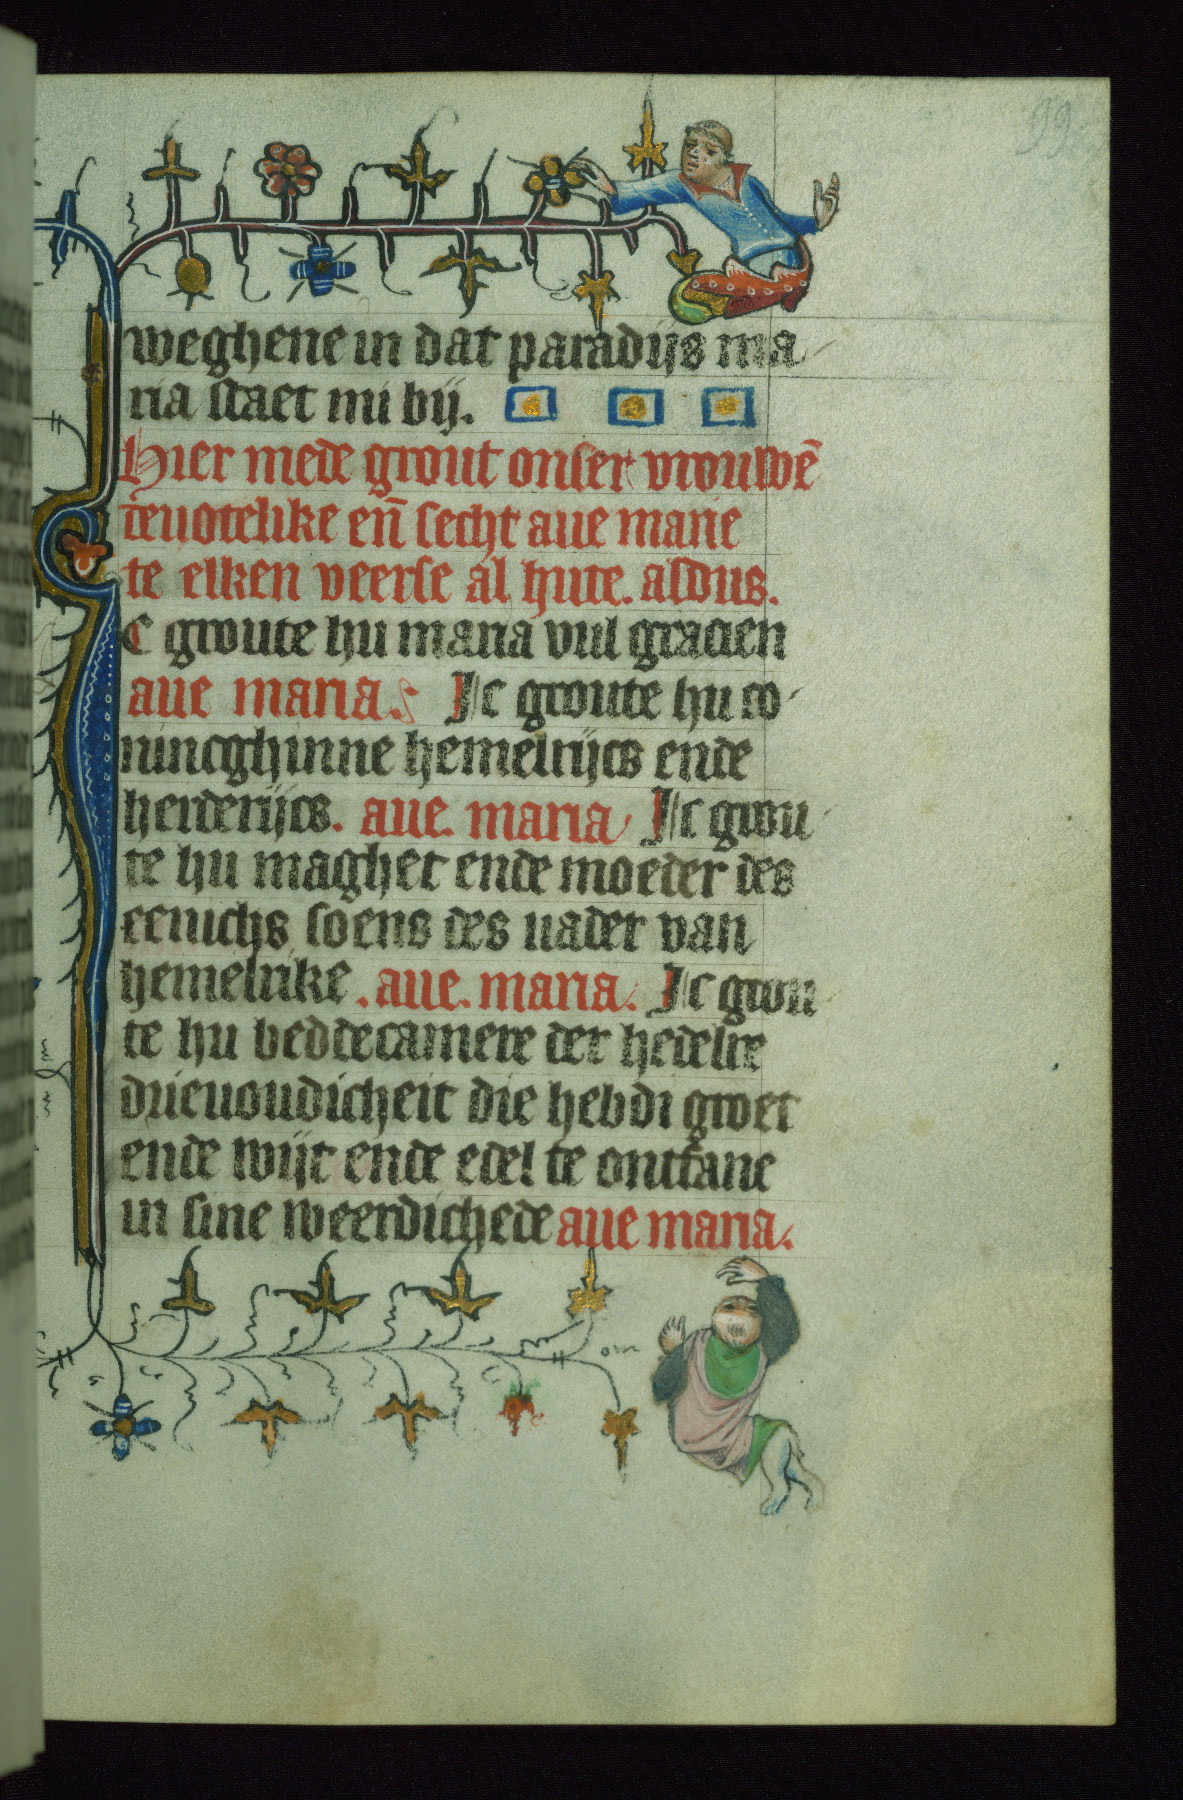 99
weghene in dat paradijs ma
ria staet mi bij.
Hier mede grout onser vrouwē
deuotelike eñ secht aue marie
te elken veerse al hute. aldus.
C groute hu maria vul gracien
aue maria. Ic groute hu co
nincghinne hemelrijcs ende
herderijcs. aue. maria Ic grou
te hu maghet ende moeder des
eenichs soens des uader van
hemelrike. aue. maria. Ic grou
te hu beddecamere der hedelre
drieuoudicheit die hebdi groet
ende wijt ende edel te ontfane
in sine weerdichede aue maria.